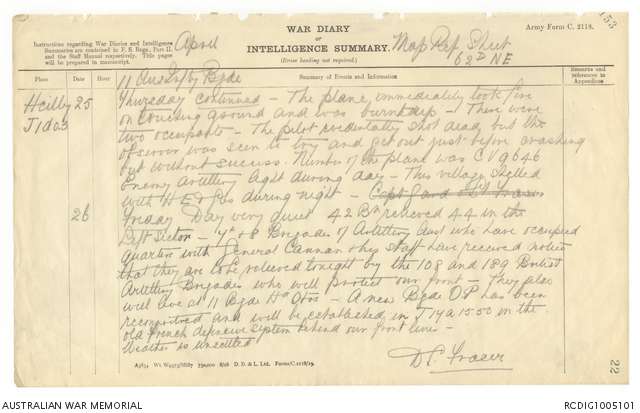 WAR DIARY
or
INTELLIGENCE SUMMARY.
(Erase heading not required.)
Army Form C. 2118.
Instructions regarding War Diaries and Intelligence
Summaries are contained in F. S. Regs., Part II.
and the Staff Manual respectively. Title pages
will be prepared in manuscript.
April
Map Ref Sheet
62D NE
153
Place
Date
Hour
Summary of Events and Information
Remarks and
references to
Appendices
11 Aust Infty Bgde
Heilly 25
J1d63
Thursday continued - The plane immediately took fire
on touching ground and was burnt up - There were
two occupants - The pilot evidentally shot dead, but the
observer was seen to try and get out just before crashing
but without success. Number of the plane was CV 9646
Enemy Artillery light during day - This village shelled
with HE & Gas during night - Capt J and Lt Fraser
26
Friday Day very quiet 42 Bn relieved 44 in the
Left Sector - 7th & 8 Brigades of Artillery Aust who have occupied
Quarters with General Cannan & his staff have received notice
that they are to be relieved tonight by the 108 and 189 British
Artillery Brigades who will protect our front - They also
will live at 11 Bgde Hd Qtrs - A new Bgde OP has been
recognoitred and will be established in J14a 15.50 in the
old French defensive system behind our front lines -
Weather is unsettled
D C Fraser
22
D. D. & L. Ltd.
AUSTRALIAN WAR MEMORIAL
RCDIG1005101